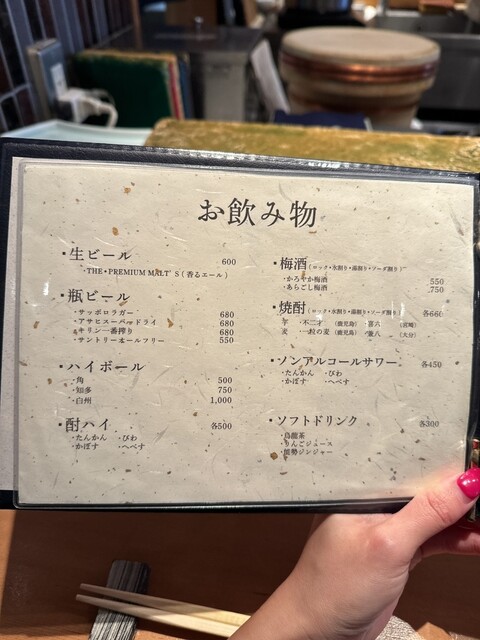 お飲み物
・生ビール 600
・THE・PREMIUM MALT'S(香るエール)
・瓶ビール
・サッポロラガー 680
・アサヒスーパードライ 680
・キリン一番搾り 680
・サントリーオールフリー 550
・ハイボール
・角 500
・知多 750
・白州 1,000
・酎ハイ 各500
・たんかん ・びわ
・かぼす ・へべす
・梅酒(ロック・水割り・湯割り・ソーダ割り)
・かろやか梅酒 550
・あらごし梅酒 750
・焼酎(ロック・水割り・湯割り・ソーダ割り) 各660
芋 ・不二才(鹿児島) ・喜六(宮崎)
麦 ・一粒の麦(鹿児島) ・兼八(大分)
・ノンアルコールサワー 各450
・たんかん ・びわ
・かぼす ・へべす
・ソフトドリンク 各300
・烏龍茶
・りんごジュース
・能勢ジンジャー